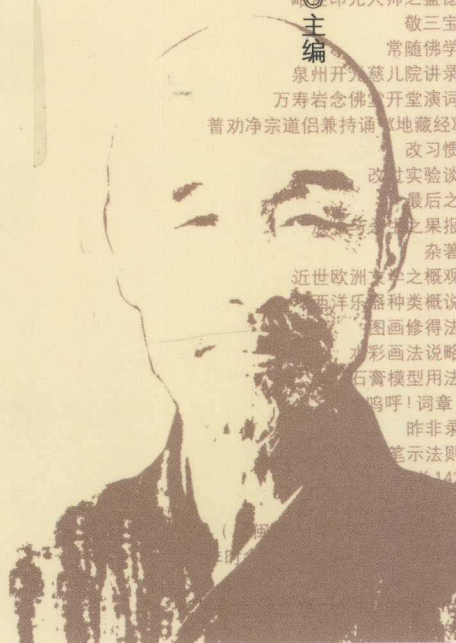 主编
敬三宝
常随佛学
泉州开元慈儿院讲录
万寿岩念佛堂开堂演词
普劝净宗道侣兼持诵《地藏经》
改习惯
改过实验谈
最后之
之果报
杂著
近世欧洲文学之概观
西洋乐器种类概说
图画修得法
水彩画法说略
石膏模型用法
呜呼！词章
昨非录
笔示法则